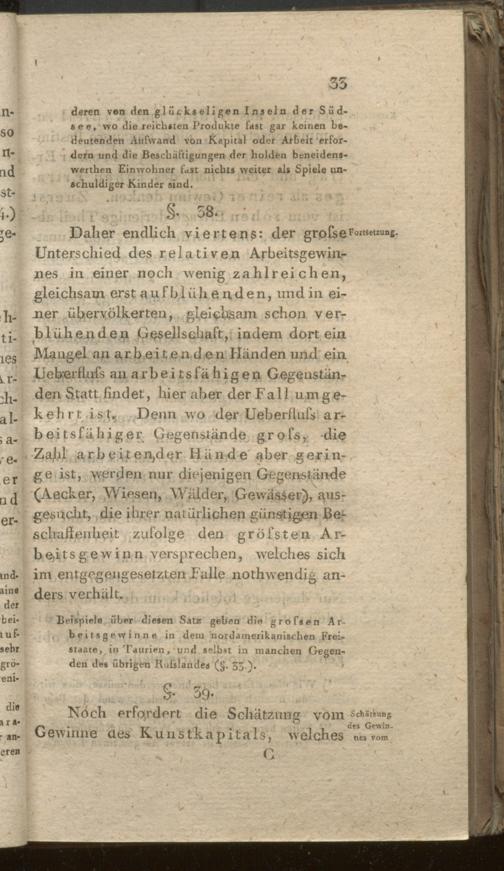 33
deren von den glückseligen Inseln der Süd-
see, wo die reichsten Produkte fast gar keinen be-
deutenden Aufwand von Kapital oder Arbeit erfor-
dern und die Beschäftigungen der holden beneidens-
werthen Einwohner fast nichts weiter als Spiele un-
schuldiger Kinder sind.
§. 38.
Daher endlich viertens: der grofse Fortsetzung.
Unterschied des relativen Arbeitsgewin-
nes in einer noch wenig zahlreichen,
gleichsam erst aufblühenden, und in ei-
ner übervölkerten, gleichsam schon ver-
blühenden Gesellschaft, indem dort ein
Mangel an arbeitenden Händen und ein
Ueberflufs an arbeitsfähigen Gegenstän-
den Statt findet, hier aber der Fall umge-
kehrt ist. Denn wo der Ueberflufs ar-
beitsfähiger Gegenstände grofs, die
Zahl arbeitender Hände aber gerin-
ge ist, werden nur diejenigen Gegenstände
(Aecker, Wiesen, Wälder, Gewässer), aus-
gesucht, die ihrer natürlichen günstigen Be-
schaffenheit zufolge den gröfsten Ar-
beitsgewinn versprechen, welches sich
im entgegengesetzten Falle nothwendig an-
ders verhält.
Beispiele über diesen Satz geben die grofsen Ar-
beitsgewinne in dem nordamerikanischen Frei-
staate, in Taurien, und selbst in manchen Gegen-
den des übrigen Rufslandes (§. 33.).
§. 39.
Noch erfordert die Schätzung vom Schätzung
des Gewin-
Gewinne des Kunstkapitals, welches nes vom
C